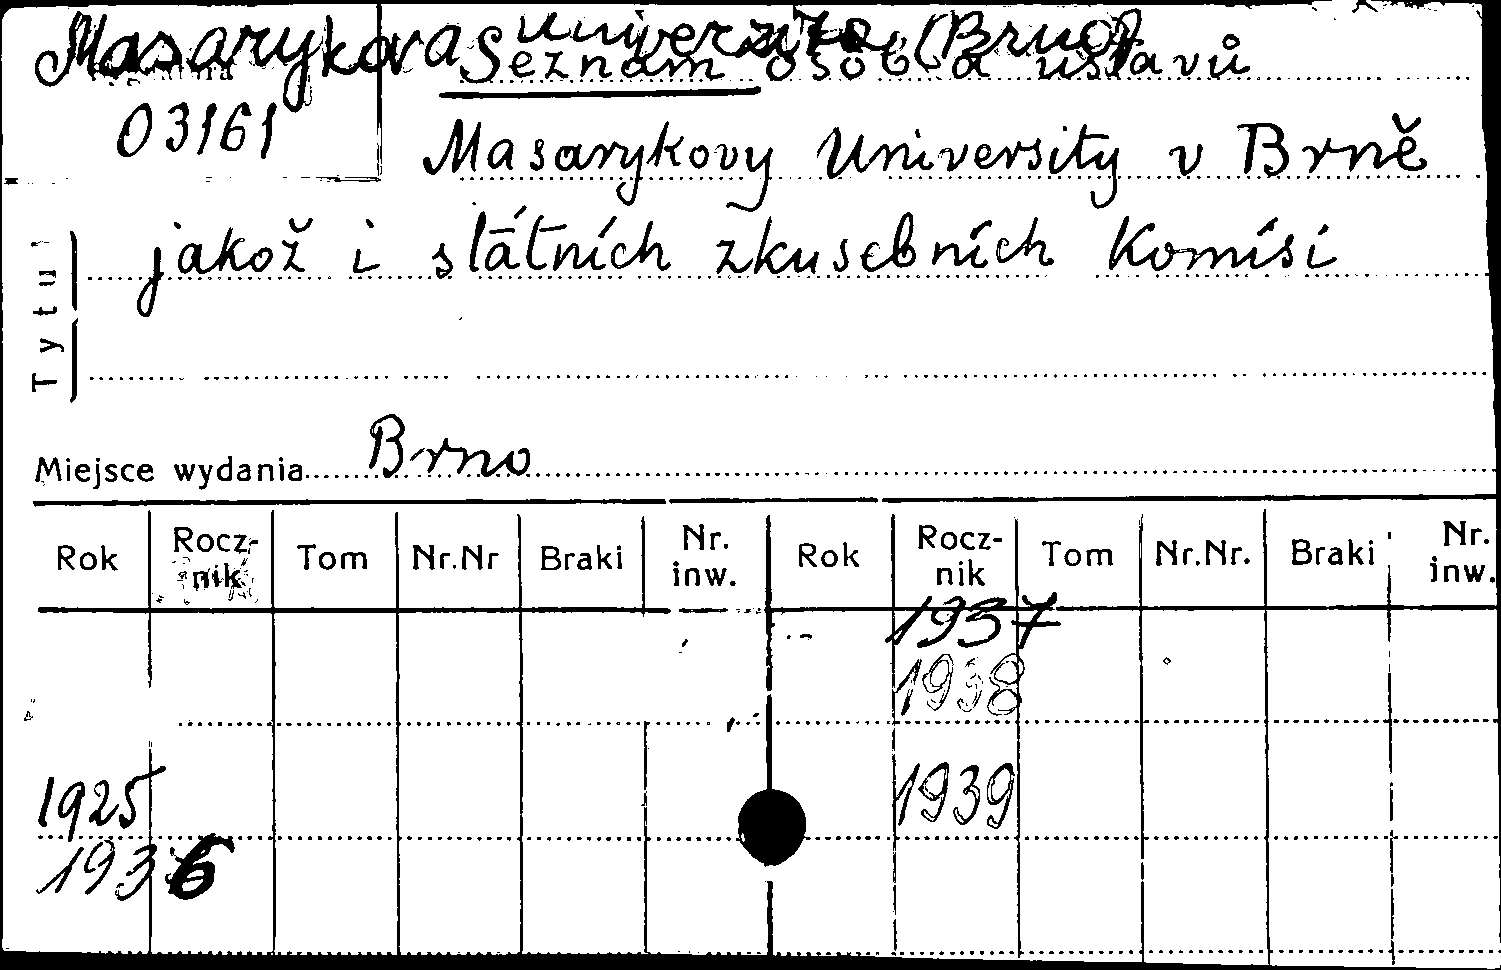 Masarykova universita (Brno)
Seznam osob a ustavů
03161
Masarykovy University v Brně
jakož i státních zkusebních Komisí
Tytuł
Miejsce wydania Brno
Rok Rocz-nik Tom Nr.Nr Braki Nr. inw. Rok Rocz-nik Tom Nr.Nr. Braki Nr. inw.
1937
1938
1925 1939
1936